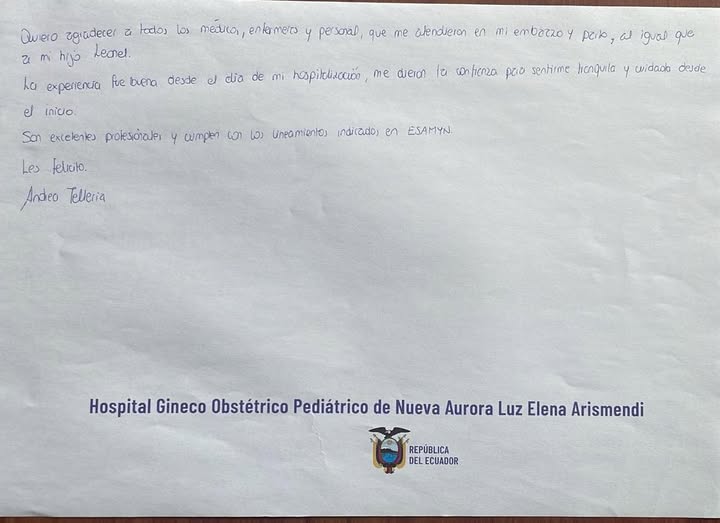 Quiero agradecer a todos los médicos, enfermeros y personal, que me atendieron en mi embarazo y parto, al igual que
a mi hijo Leonel.
La experiencia fue buena desde el día de mi hospitalización, me dieron la confianza para sentirme tranquila y cuidada desde
el inicio.
Son excelentes profesionales y cumplen con los lineamientos indicados en ESAMYN.
Les felicito.
Andrea Telleria
Hospital Gineco Obstétrico Pediátrico de Nueva Aurora Luz Elena Arismendi
REPÚBLICA
DEL ECUADOR